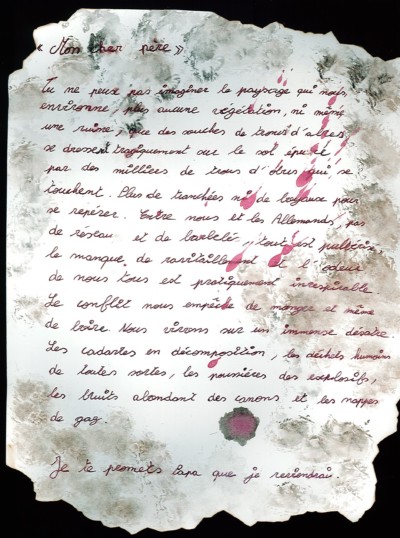 « Mon cher père »
Tu ne peux pas imaginer le paysage qui nous
environne, plus aucune végétation, ni même
une ruine, que des souches de troncs d'arbres
se dressent tragiquement sur le sol épuré,
par des milliers de trous d'obus qui se
touchent. Plus de tranchées ni de boyaux pour
se repérer. Entre nous et les Allemands, pas
de réseau et de barbelé, tout est pulvérisé
le manque de ravitaillement et l'odeur
de nous tous est pratiquement irrespirable.
Le conflit nous empêche de manger et même
de boire. Nous vivons sur un immense désastre.
Les cadavres en décomposition, les déchets humains
de toutes sortes, les poussières des explosifs,
les bruits abondant des canons et les nappes
de gaz.
Je te promets Papa que je reviendrai.